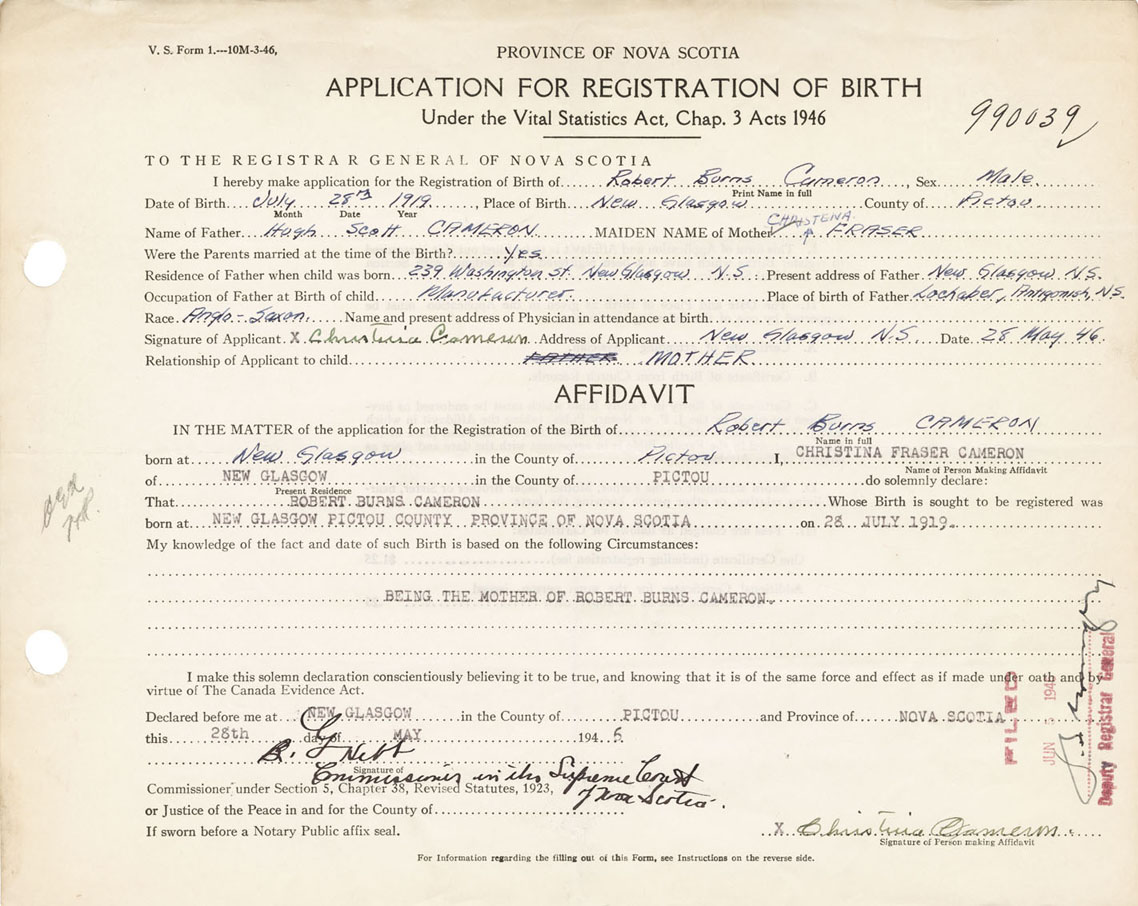 V. S. Form 1.---10M-3-46,
PROVINCE OF NOVA SCOTIA
APPLICATION FOR REGISTRATION OF BIRTH
Under the Vital Statistics Act, Chap. 3 Acts 1946
990039
TO THE REGISTRAR GENERAL OF NOVA SCOTIA
I hereby make application for the Registration of Birth of Robert Burns Cameron, Sex Male
Print Name in full
Date of Birth July 28th 1919, Place of Birth New Glasgow County of Pictou
Month Date Year
CHRISTENA
Name of Father Hugh Scott CAMERON MAIDEN NAME of Mother FRASER
Were the Parents married at the time of the Birth? Yes
Residence of Father when child was born 239 Washington St. New Glasgow N.S. Present address of Father New Glasgow N.S.
Occupation of Father at Birth of child Manufacturer. Place of birth of Father Lochaber, Antigonish, N.S.
Race Anglo-Saxon. Name and present address of Physician in attendance at birth
Signature of Applicant X Christina Cameron Address of Applicant New Glasgow N.S. Date 28 May 46
Relationship of Applicant to child FATHER MOTHER
AFFIDAVIT
IN THE MATTER of the application for the Registration of the Birth of Robert Burns CAMERON
Name in full
born at New Glasgow in the County of Pictou I, CHRISTINA FRASER CAMERON
Name of Person Making Affidavit
of NEW GLASGOW in the County of PICTOU do solemnly declare:
Present Residence
That ROBERT BURNS CAMERON Whose Birth is sought to be registered was
born at NEW GLASGOW PICTOU COUNTY PROVINCE OF NOVA SCOTIA on 28 JULY 1919.
My knowledge of the fact and date of such Birth is based on the following Circumstances:
BEING THE MOTHER OF ROBERT BURNS CAMERON.
I make this solemn declaration conscientiously believing it to be true, and knowing that it is of the same force and effect as if made under oath and by
virtue of The Canada Evidence Act.
Declared before me at NEW GLASGOW in the County of PICTOU and Province of NOVA SCOTIA
this 28th day of MAY 1946
Signature of
Commissioner in the Supreme Court
Commissioner under Section 5, Chapter 38, Revised Statutes, 1923,
of Nova Scotia.
or Justice of the Peace in and for the County of
If sworn before a Notary Public affix seal.
X Christina Cameron
Signature of Person making Affidavit
For Information regarding the filling out of this Form, see Instructions on the reverse side.
FILED
JUN 1946
Deputy Registrar General